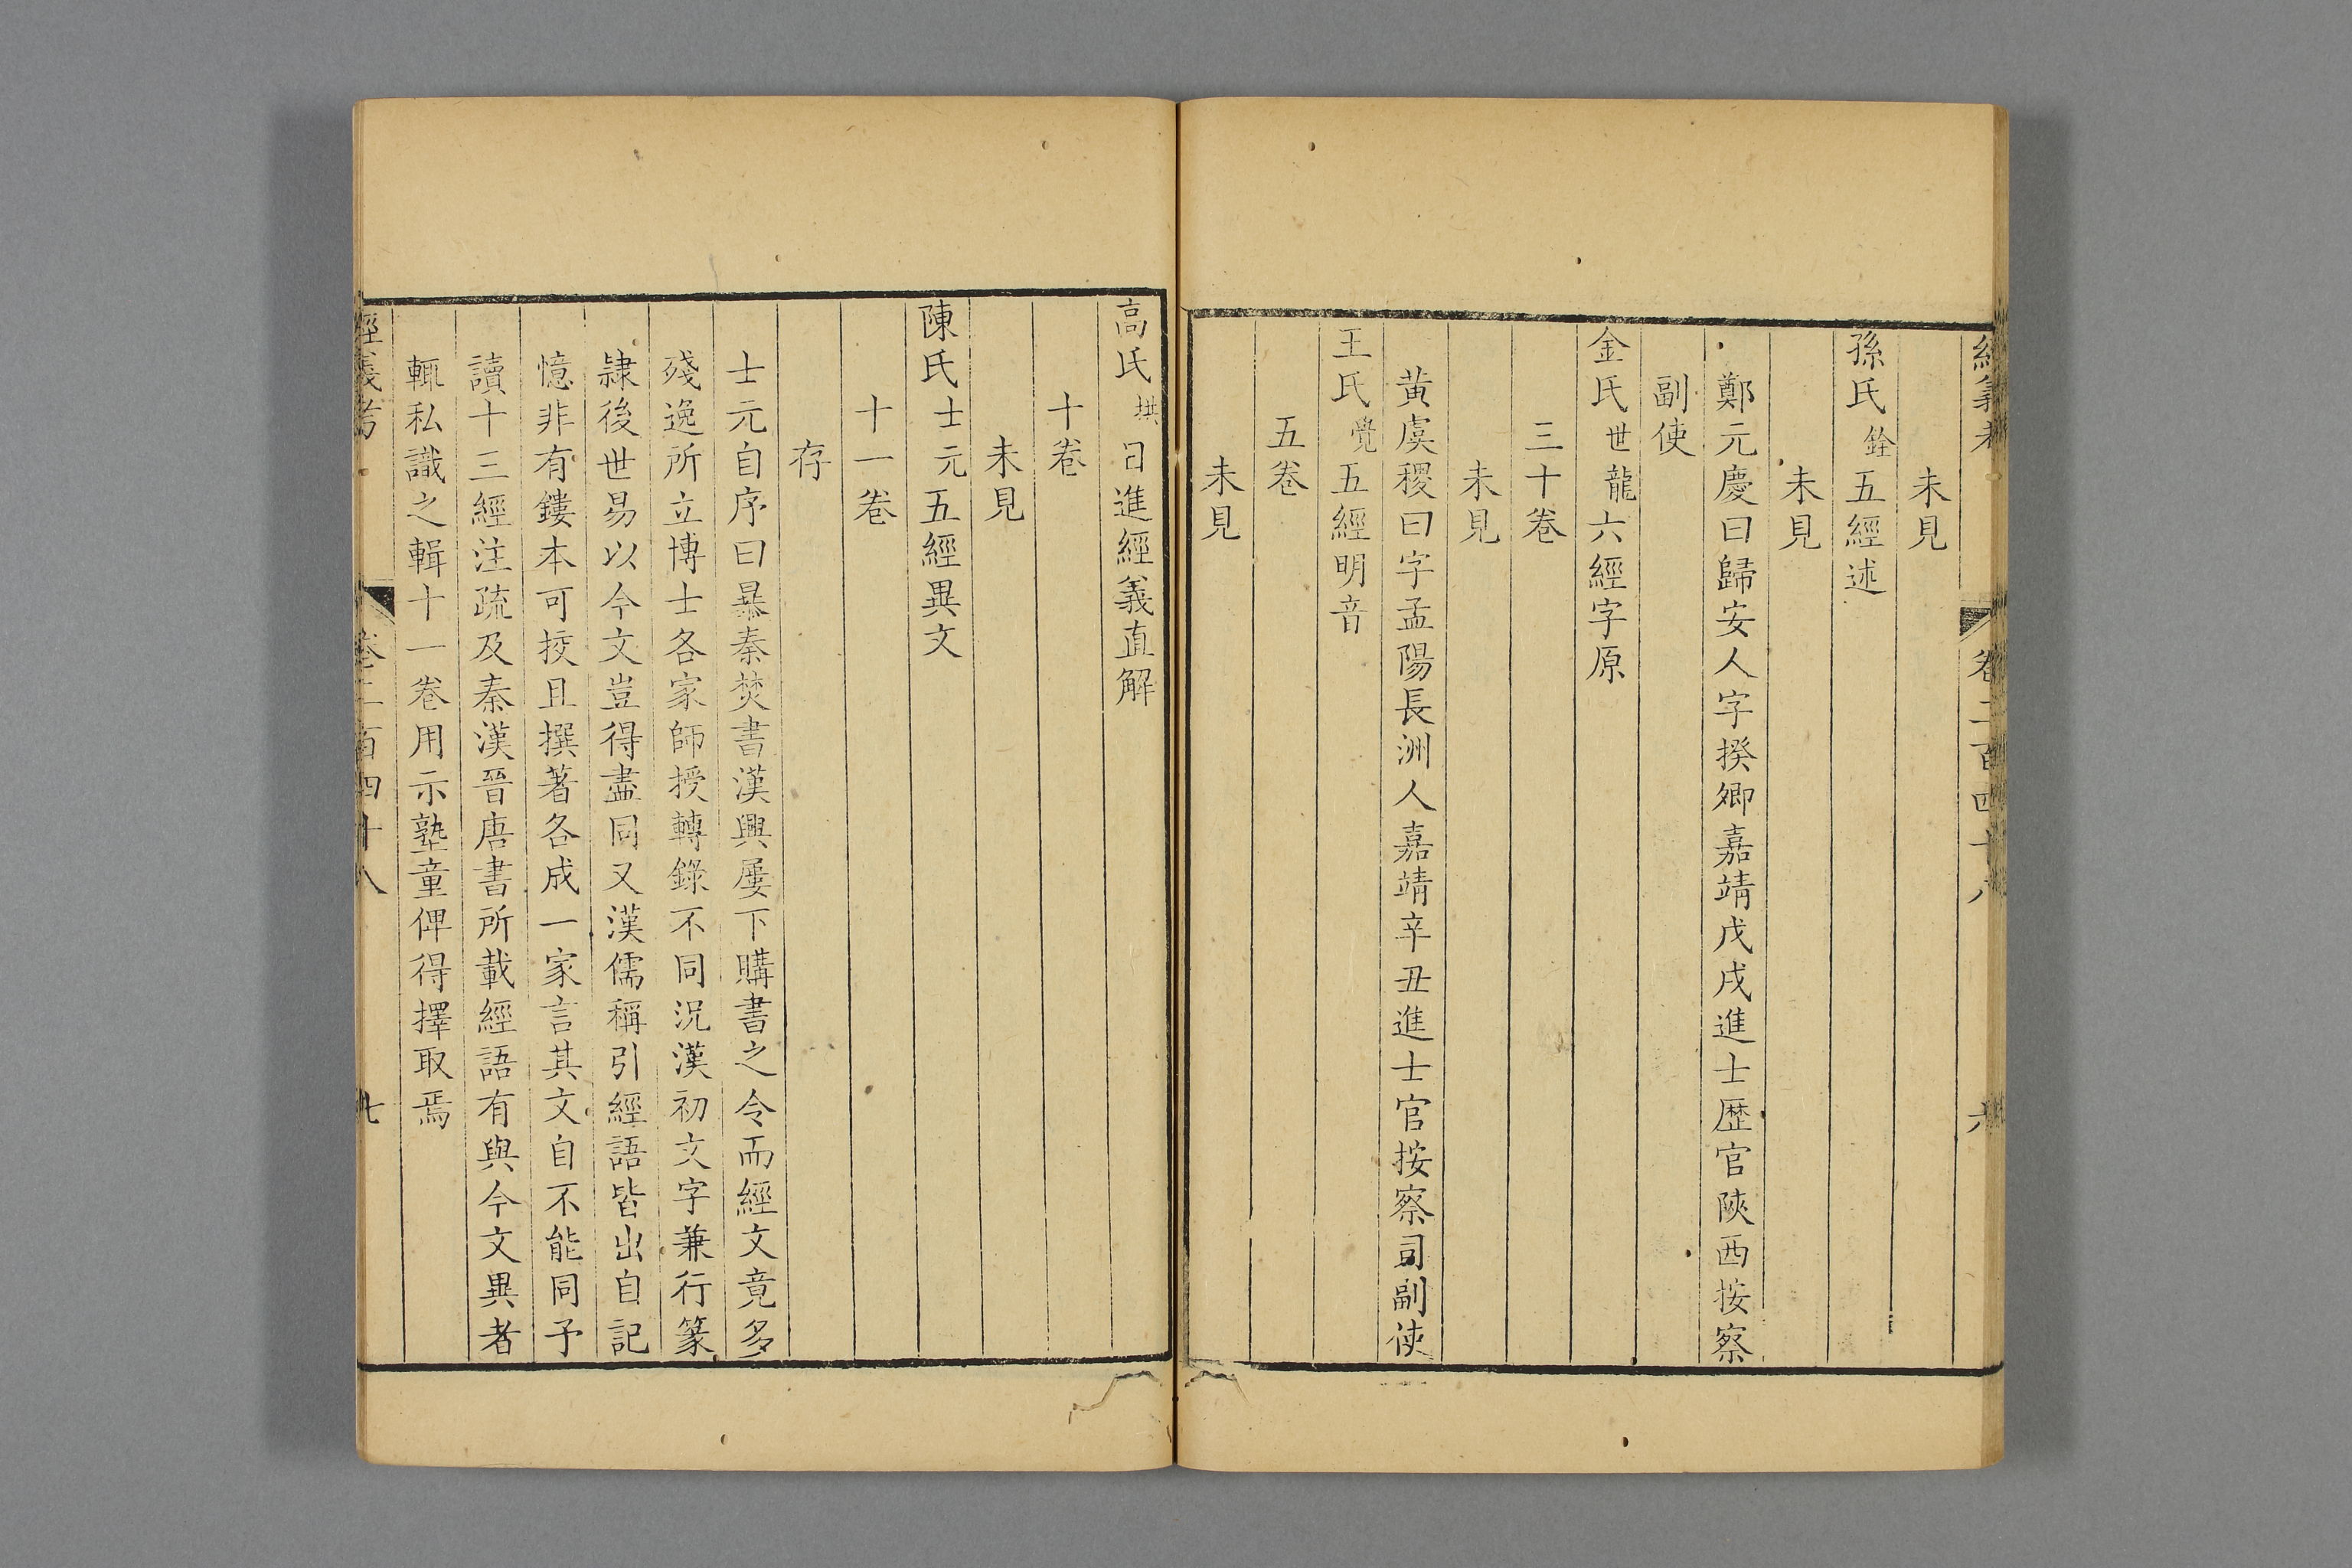 經義考 卷二百四十八 六
未見
孫氏銓五經述
未見
鄭元慶曰歸安人字揆卿嘉靖戊戌進士歷官陝西按察
副使
金氏世龍六經字原
三十卷
未見
黃虞稷曰字孟陽長洲人嘉靖辛丑進士官按察司副使
王氏覺五經明音
五卷
未見
高氏拱日進經義直解
十卷
未見
陳氏士元五經異文
十一卷
存
士元自序曰暴秦焚書漢興屢下購書之令而經文竟多
殘逸所立博士各家師授轉錄不同況漢初文字兼行篆
隸後世易以今文豈得盡同又漢儒稱引經語皆出自記
憶非有鏤本可挍且撰著各成一家言其文自不能同予
讀十三經注疏及秦漢晉唐書所載經語有與今文異者
輒私識之輯十一卷用示塾童俾得擇取焉
經義考 卷二百四十八 七